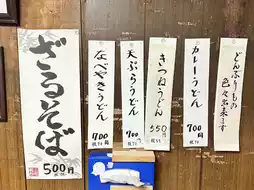 どんぶりもの
色々出来ます
カレーうどん
700円
きつねうどん
550円
天ぷらうどん
700円
なべやきうどん
700円
ざるそば
500円